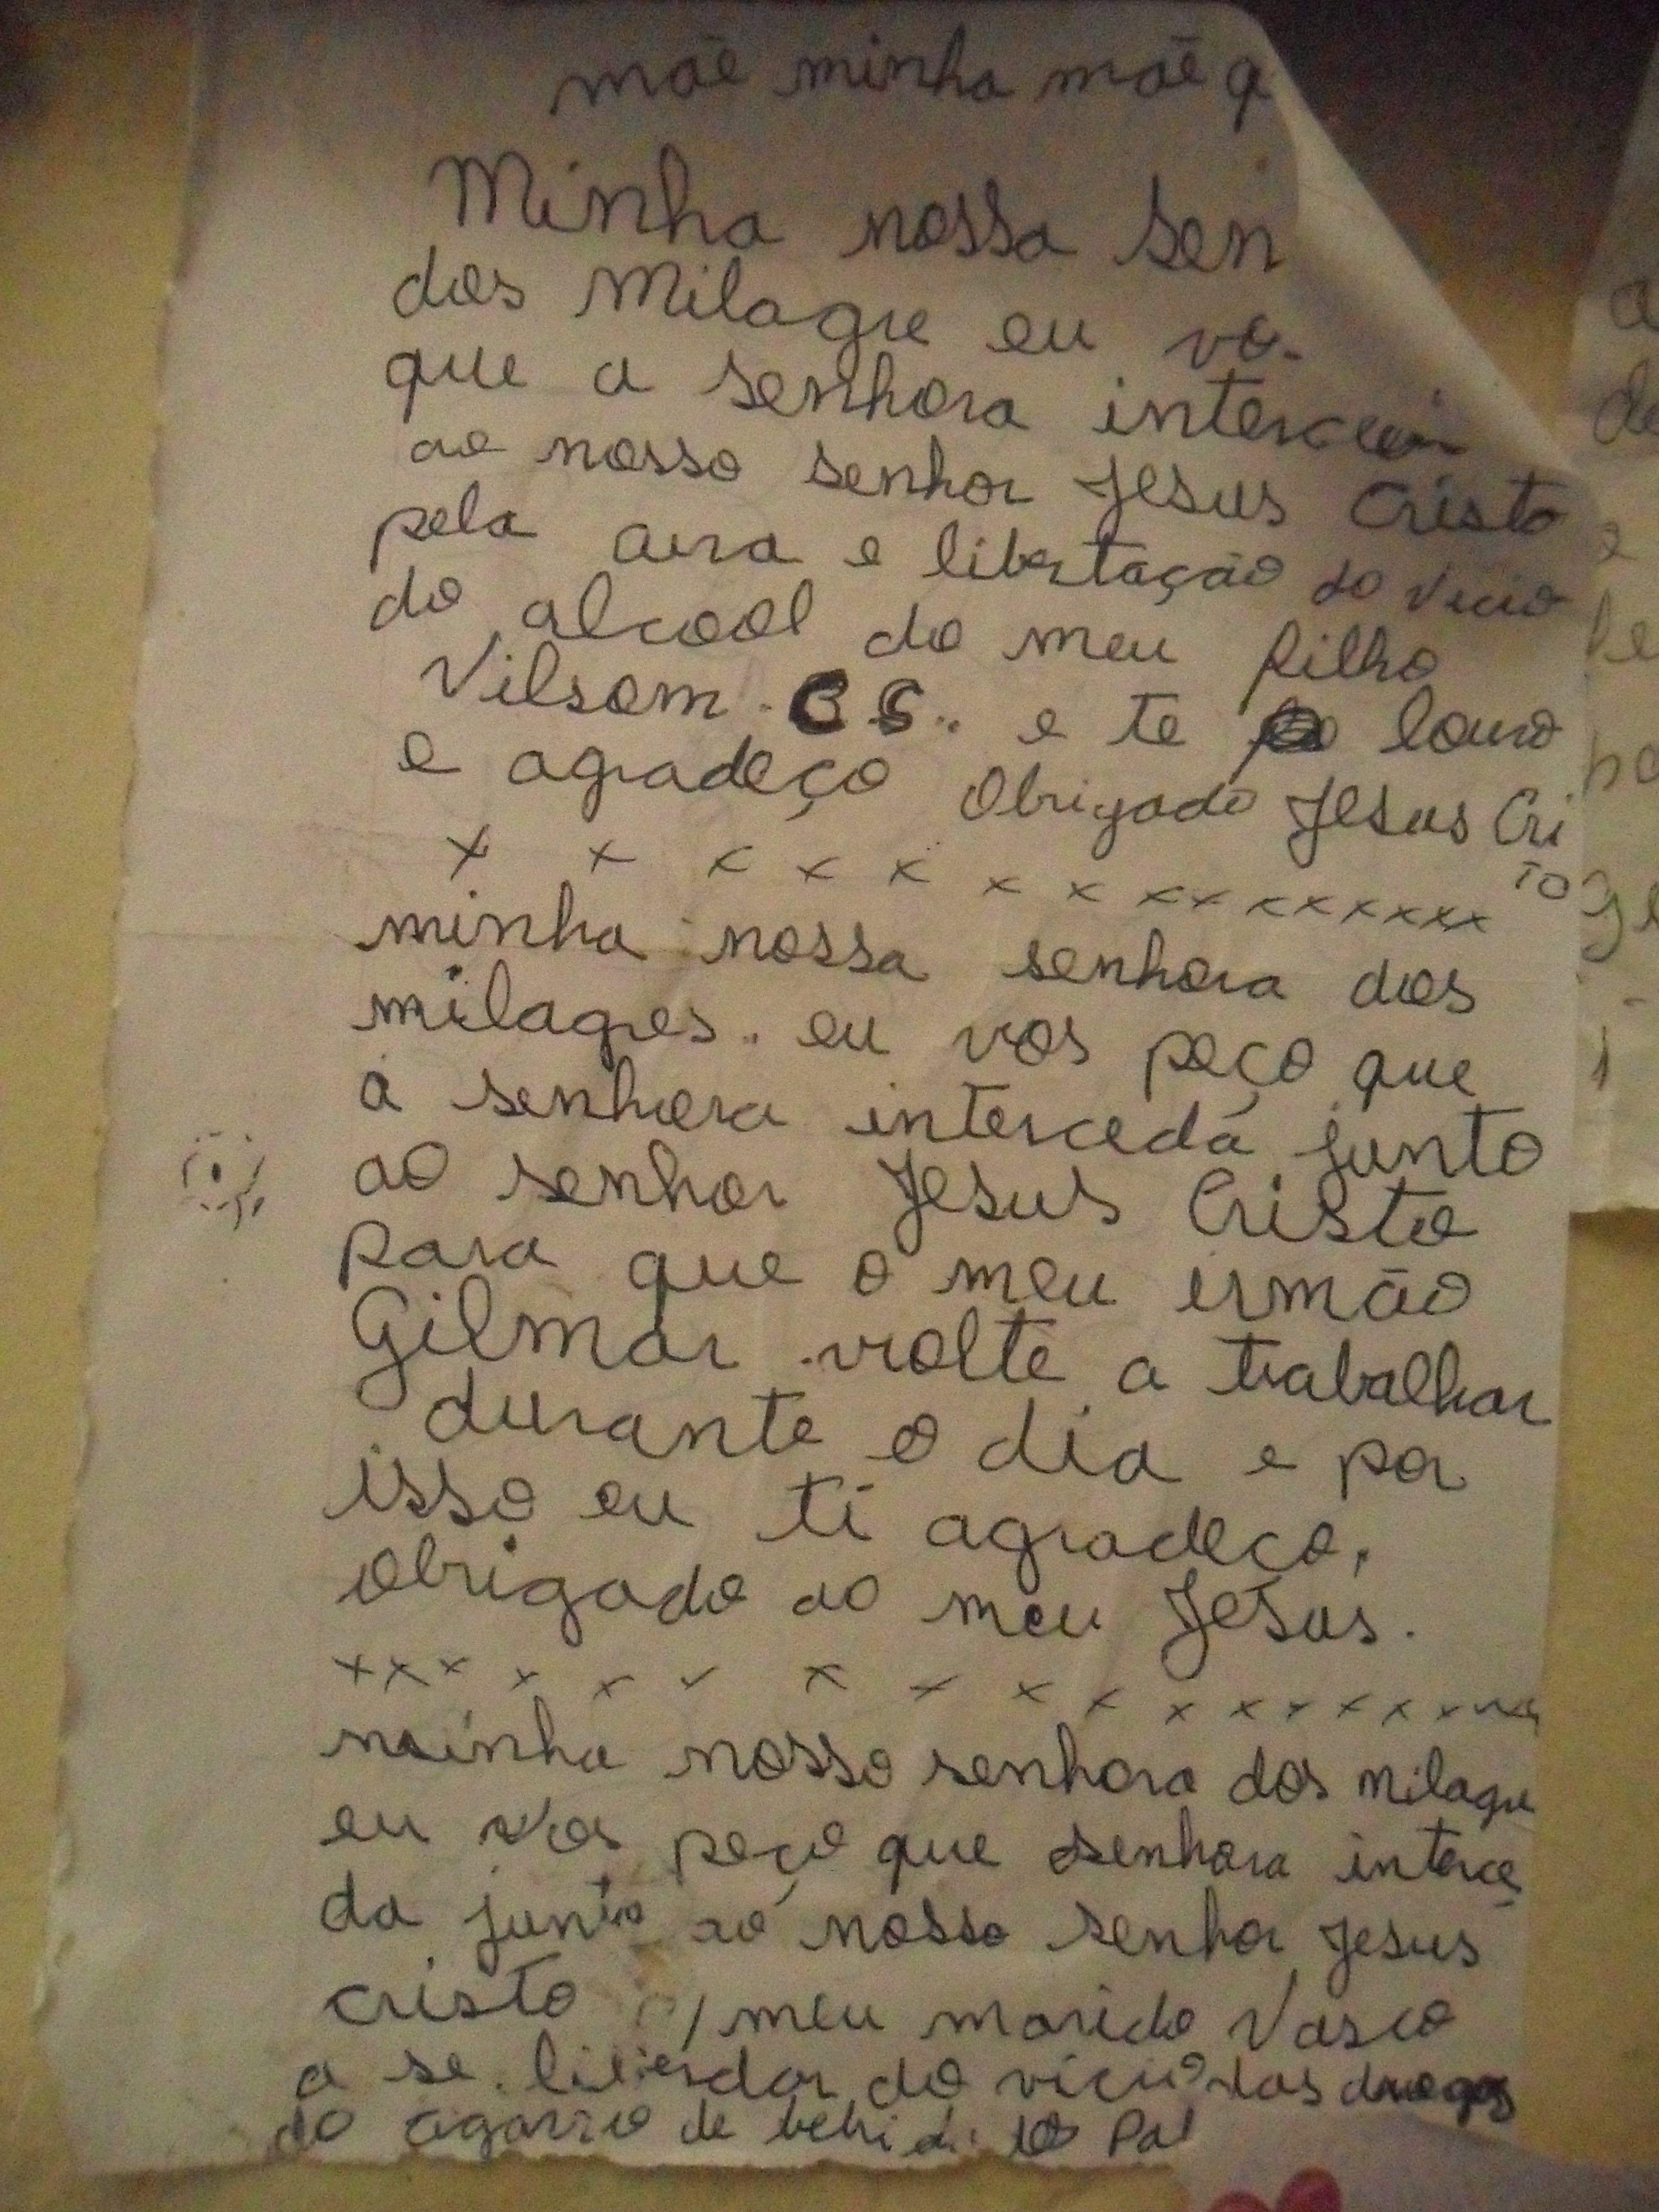 mãe minha mãe q
Minha nossa sen
dos Milagre eu vo
que a senhora
ao nosso senhor Jesus Cristo
pela cura e libertação do vicio
do alcool do meu filho
Vilsom. C S.. e te louvo
e agradeço Obrigado Jesus Cri
to
x x x x x x x x x x x x x x x x
minha nossa senhora dos
milagres.. eu vos peço que
a senhora interceda junto
ao senhor Jesus Cristo
para que o meu irmão
Gilmar volte a trabalhar
durante o dia e por
isso eu ti agradeço,
obrigado ao meu Jesus.
x x x x x x x x x x x x x x x x
minha nosso senhora dos milagre
eu vos peço que senhora interce
da junto ao nosso senhor Jesus
cristo / meu marido Vasco
a se do vicio das drogas
do cigarro de